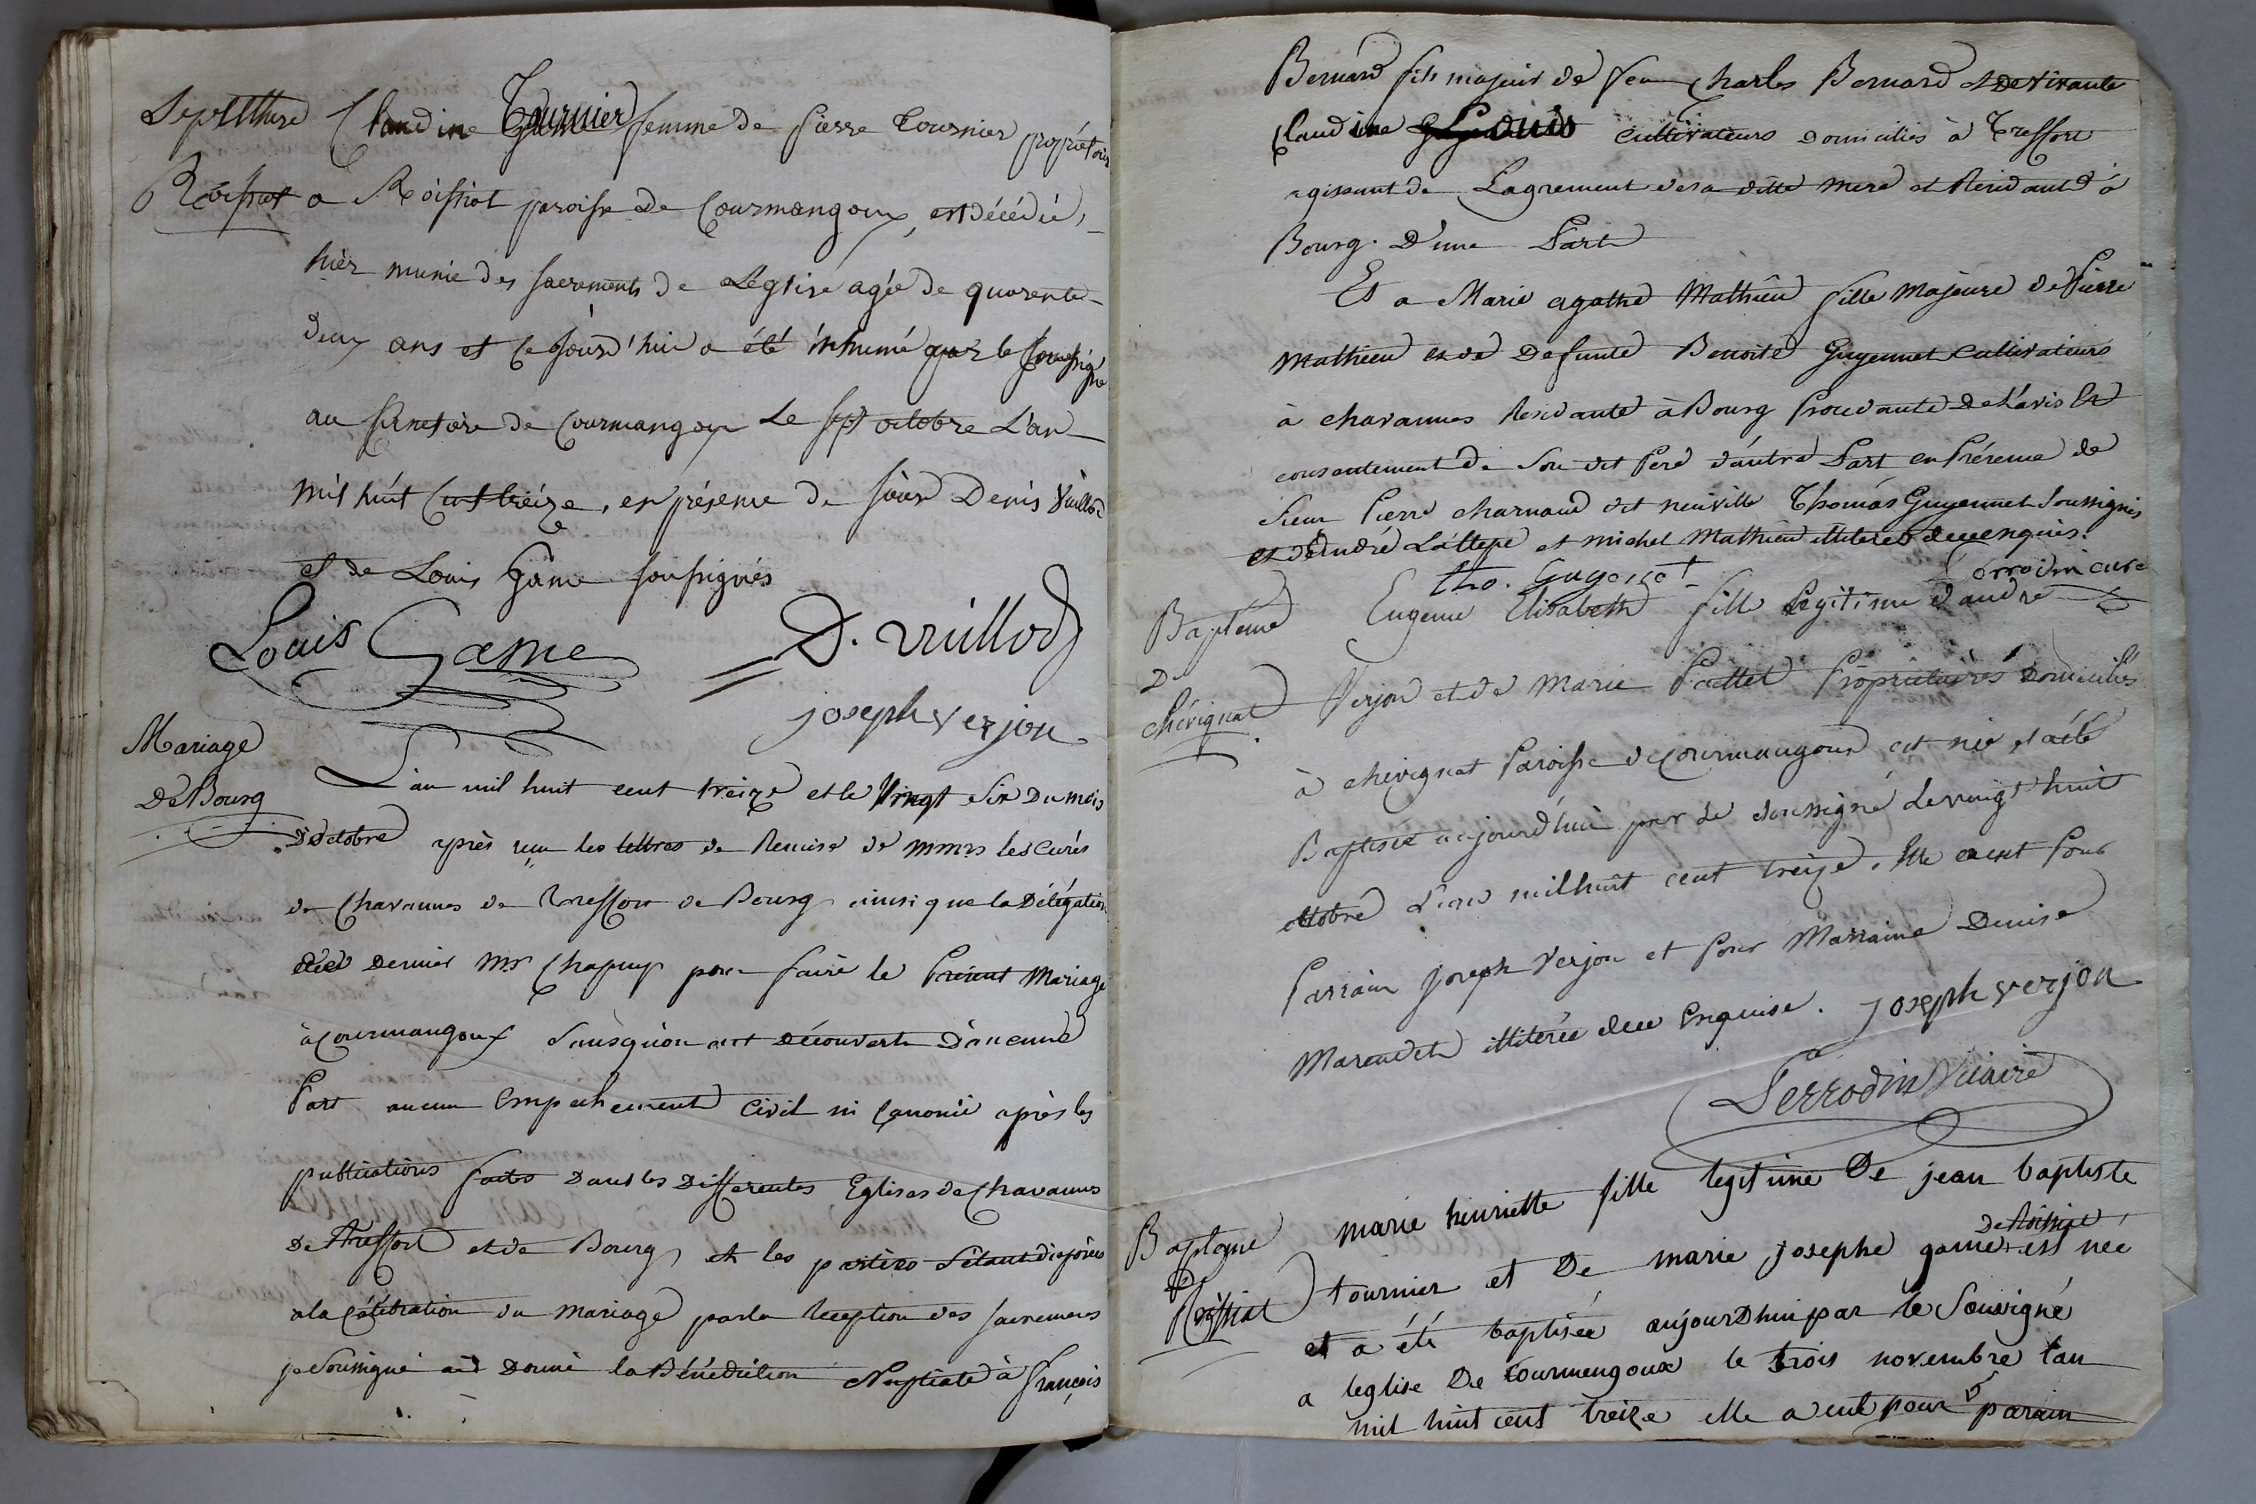 Sepulture Claudine Tournier femme de pierre tournier propriétaire
Roissiat a Roissiat paroisse de Courmangoux, est décédée,
hièr munie des sacrements de L'église agée de quarente
deux ans et ce jourd'hui a été inhumé par le soussigné
au simetière de Courmangoux Le sept octobre L'an
mil huit cent treize, en présence de sieur Denis Vuillod
et de Louis Gâme soussignés
Louis Game D. Vuillod
joseph verjon
Mariage
De Bourg
L'an mil huit cent treize et le Vingt six Du mois
D'octobre après reçu les lettres de Remise de mmrs les Curés
de Chavannes de treffort de Bourg ainsi que la Délégation
dud dernier Mr Chapuy pour faire le Présent Mariage
à Courmangoux Sansqu'on ait Découvert D'aucune
Part aucun Empechement Civil ni Canonic après les
publications faites Dans les Differentes Eglises de Chavannes
De treffort et de Bourg, et les parties S'étant disposées
a la Célébration du mariage par la Reception des sacremens
je Soussigné ai Donné la Bénédiction Nuptiale à françois
Bernard fils majeur de feu Charles Bernard et De vivante
Claudine Louis cultivateurs domiciliés à Treffort
agissant de Lagrement de sa ditte mere et Residant à
Bourg. D'une Part
Et a Marie agathe Mathieu fille Majeure de Pierre
Mathieu et de Defunte Benoite Guyennet Cultivateurs
à chavannes Residante à Bourg Procedante De L'avis Et
consentement de Son dit Pere d'autre Part en Présence de
Sieur Pierre charnaud dit neuville Thomas Guyennet Soussignés
et d'andré Lattepe et michel Mathieu illiteres de ce enquis.
tho. Guyennet Perrodin curé
Bapteme Eugenie Elisabeth fille Legitime d'andré
De
chevignat Verjon et de Marie Paillet Propriétaires Domiciliés
à chevignat Paroisse de courmangoux est née et a été
Baptisée aujourd'hui par le soussigné le vingt huit
octobre L'an mil huit cent treize. Elle a eut Pour
Parrain Joseph Verjon et Pour Marraine Denise
Marendet illiterée de ce Enquise. joseph verjon
Perrodin Vicaire
Bapteme marie henriette fille legitime De jean baptiste
de Roissiat
De Roissiat tournier et De marie josephe game est née
et a été baptisée aujourdhui par le Sousigné
a leglise De Courmengoux le trois novembre lan
mil huit cent treize elle a eut pour parain